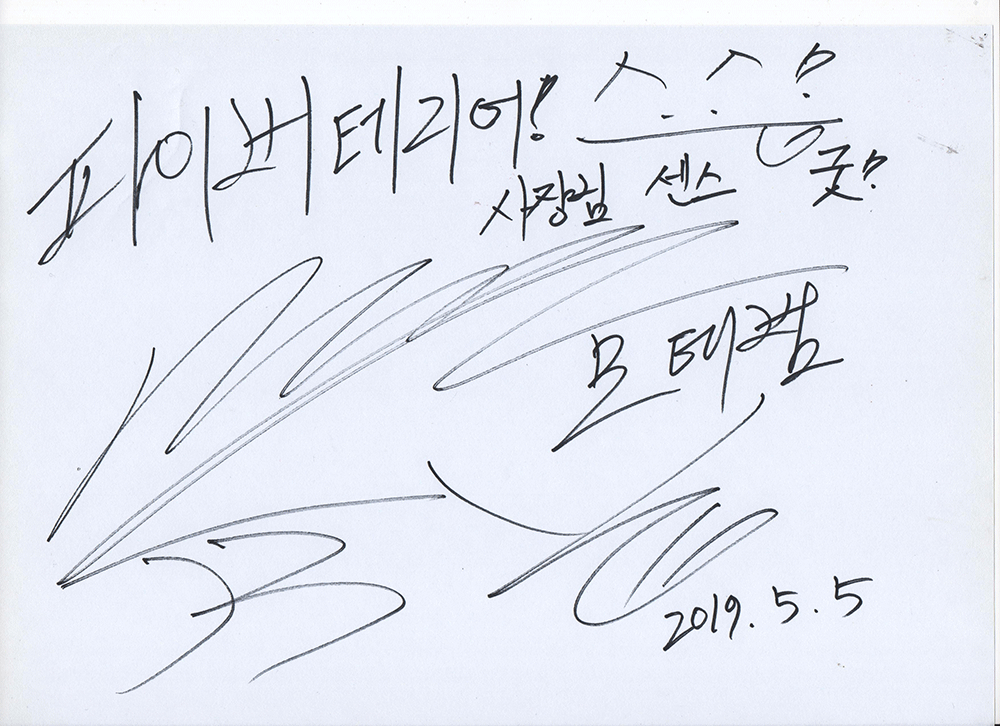 파이버 테리어!
사장님 센스 굿!
모태범
2019. 5. 5